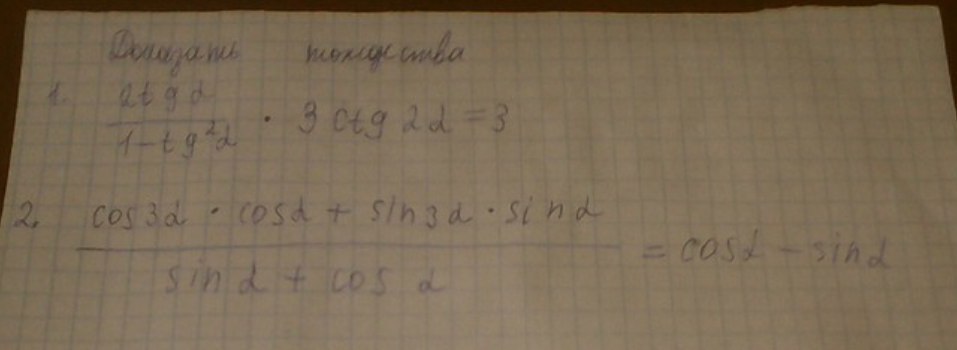 Доказать тождества
1. 2tgα / (1-tg²α) · 3ctg2α=3
2. (cos3α · cosα + sin3α · sinα) / (sinα + cosα) = cosα - sinα